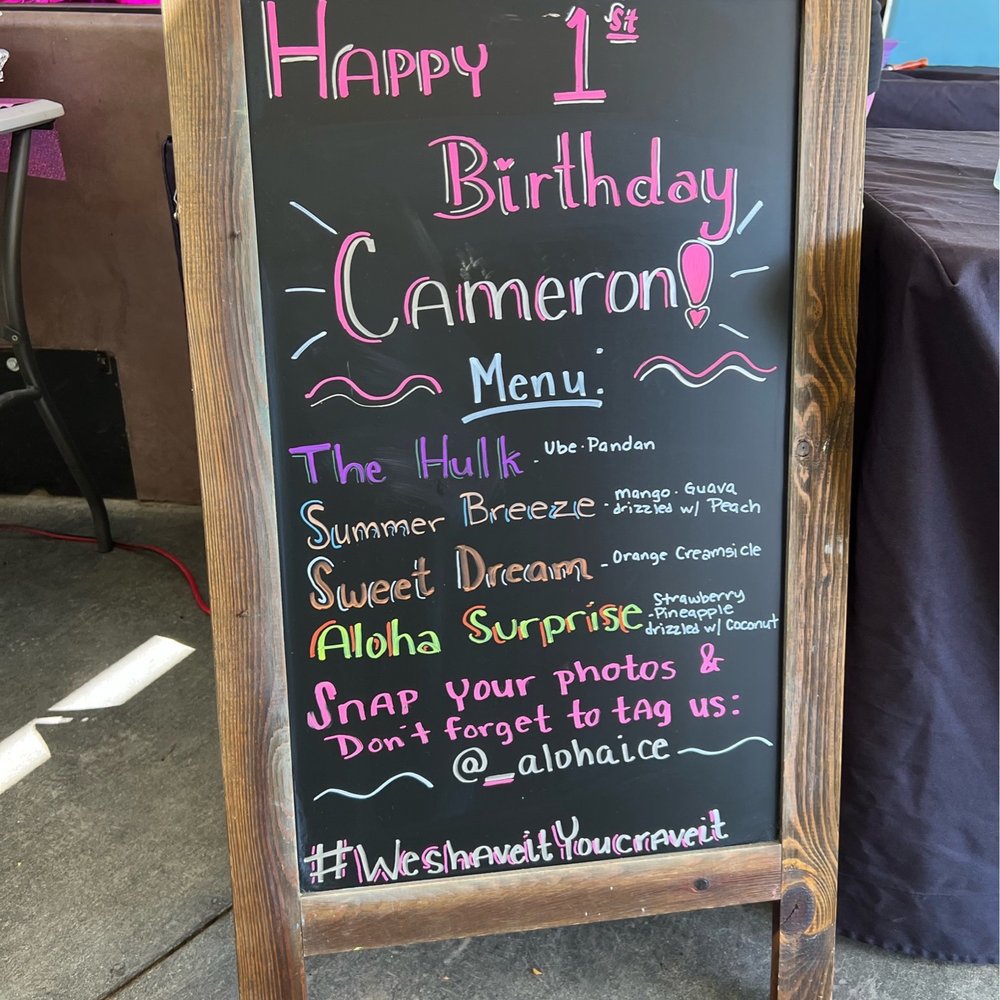 Happy 1st
Birthday
Cameron!
Menu:
The Hulk - Ube · Pandan
Summer Breeze - mango · Guava
drizzled w/ Peach
Sweet Dream - Orange Creamsicle
Aloha Surprise Strawberry
-Pineapple
drizzled w/ Coconut
Snap your photos &
Don't forget to tag us:
@_alohaice
#WeshaveitYoucraveit